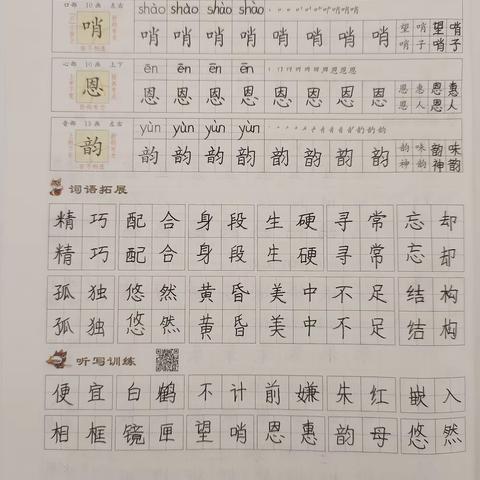 口部 10画 左右 shào shào shào shào
哨 哨 哨 哨 哨 哨 哨 哨 望哨 望哨
哨子 哨子
心部 10画 上下 ēn ēn ēn ēn
恩 恩 恩 恩 恩 恩 恩 恩 恩惠 恩惠
恩人 恩人
音部 13画 左右 yùn yùn yùn yùn
韵 韵 韵 韵 韵 韵 韵 韵 韵味 韵味
神韵 神韵
词语拓展
精巧 配合 身段 生硬 寻常 忘却
精巧 配合 身段 生硬 寻常 忘却
孤独 悠然 黄昏 美中不足 结构
孤独 悠然 黄昏 美中不足 结构
听写训练
便宜 白鹤 不计前嫌 朱红 嵌入
相框 镜匣 望哨 恩惠 韵母 悠然